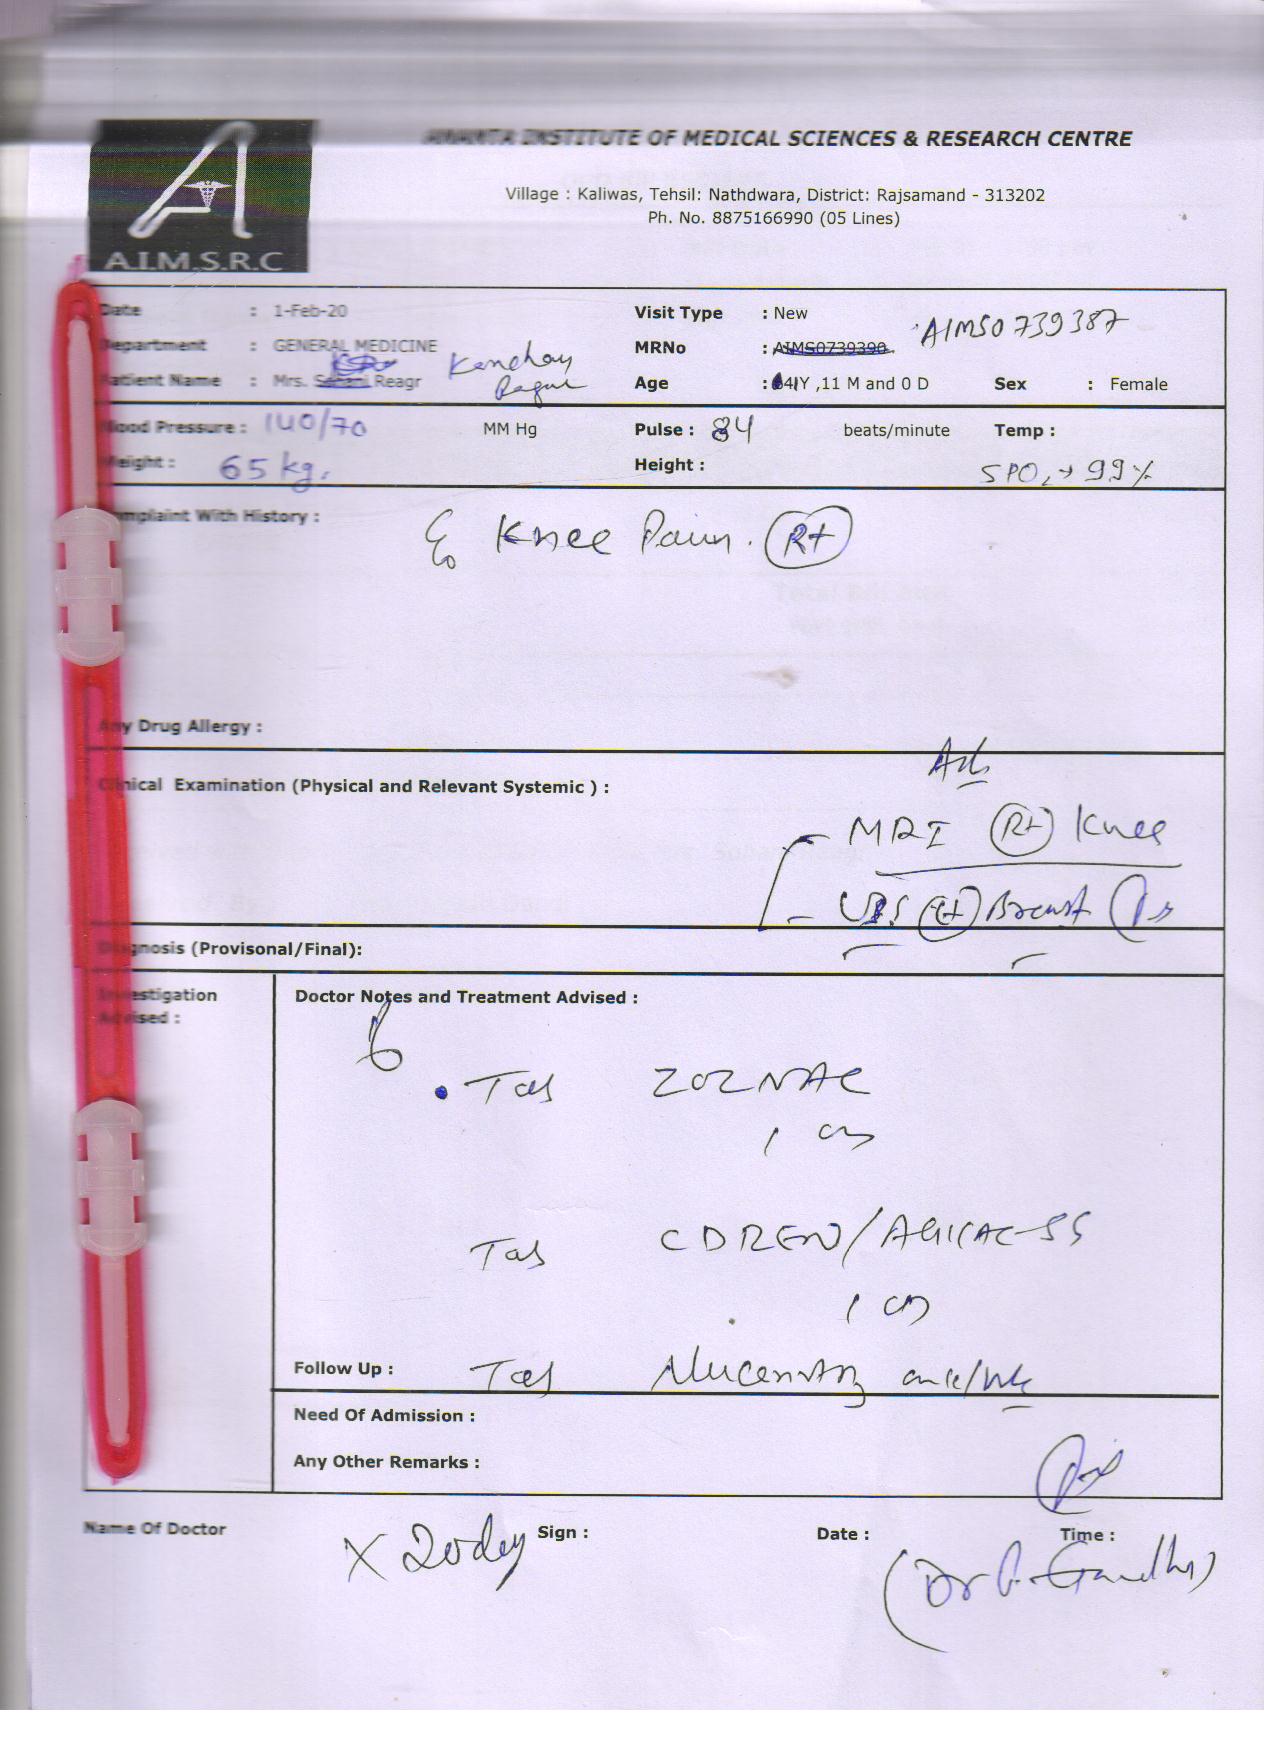 ANANTA INSTITUTE OF MEDICAL SCIENCES & RESEARCH CENTRE
Village : Kaliwas, Tehsil: Nathdwara, District: Rajsamand - 313202
Ph. No. 8875166990 (05 Lines)
A.I.M.S.R.C
Date : 1-Feb-20 Visit Type : New
AIMS0739387
Department : GENERAL MEDICINE MRNo : AIMS0739390
Patient Name : Mrs. Reagr Age : 41Y ,11 M and 0 D Sex : Female
Blood Pressure : 140/70 MM Hg Pulse : 84 beats/minute Temp :
Weight : 65 kg. Height : SPO2 → 99%
Complaint With History : Knee Pain. Rt
Any Drug Allergy :
Adv
Clinical Examination (Physical and Relevant Systemic ) :
MRI Rt Knee
Breast
Diagnosis (Provisonal/Final):
Investigation Advised :
Doctor Notes and Treatment Advised :
Tab ZOZNAC
1 OD
Tab CDREN/
1 OD
Follow Up : Tab
Need Of Admission :
Any Other Remarks :
Name Of Doctor Sign : Date : Time :
X 20 day
(Dr A. Gandhi)